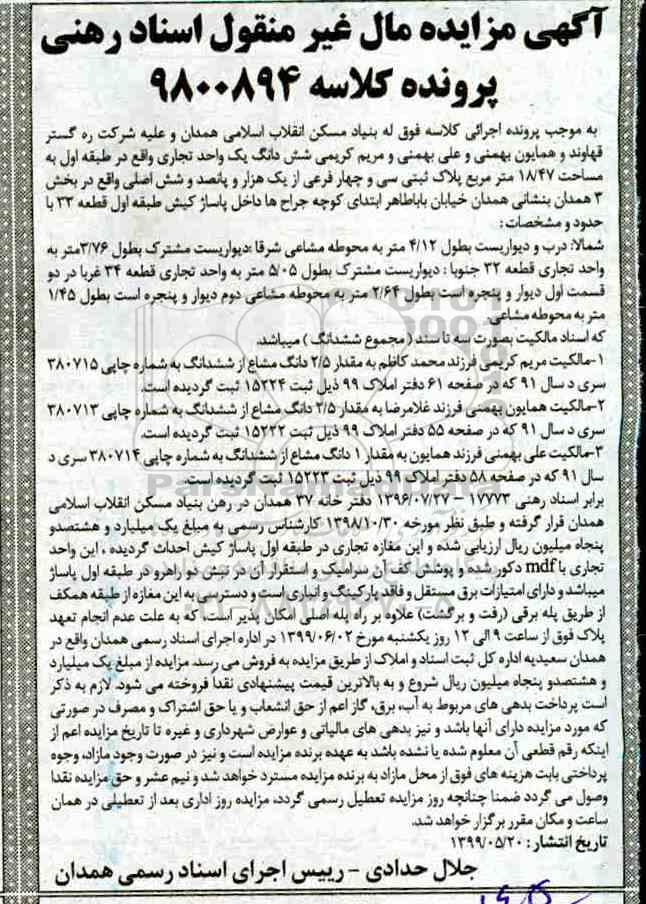 آگهی مزایده مال غیر منقول اسناد رهنی
پرونده کلاسه ۹۸۰۰۸۹۴
به موجب پرونده اجرائی کلاسه فوق له بنیاد مسکن انقلاب اسلامی همدان و علیه شرکت ره گستر
قهاوند و همایون بهمنی و علی بهمنی و مریم کریمی شش دانگ یک واحد تجاری واقع در طبقه اول به
مساحت ۱۸/۴۷ متر مربع پلاک ثبتی سی و چهار فرعی از یک هزار و پانصد و شش اصلی واقع در بخش
۳ همدان بنشانی همدان خیابان باباطاهر ابتدای کوچه جراح ها داخل پاساژ کیش طبقه اول قطعه ۳۳ با
حدود و مشخصات:
شمالا: درب و دیواریست بطول ۴/۱۲ متر به محوطه مشاعی شرقا :دیواریست مشترک بطول ۳/۷۶متر به
واحد تجاری قطعه ۳۲ جنوبا : دیواریست مشترک بطول ۵/۰۵ متر به واحد تجاری قطعه ۳۴ غربا در دو
قسمت اول دیوار و پنجره است بطول ۲/۶۴ متر به محوطه مشاعی دوم دیوار و پنجره است بطول ۱/۴۵
متر به محوطه مشاعی
که اسناد مالکیت بصورت سه تا سند ( مجموع ششدانگ ) میباشد.
۱-مالکیت مریم کریمی فرزند محمد کاظم به مقدار ۲/۵ دانگ مشاع از ششدانگ به شماره چاپی ۳۸۰۷۱۵
سری د سال ۹۱ که در صفحه ۶۱ دفتر املاک ۹۹ ذیل ثبت ۱۵۲۲۴ ثبت گردیده است.
۲-مالکیت همایون بهمنی فرزند غلامرضا به مقدار ۲/۵ دانگ مشاع از ششدانگ به شماره چاپی ۳۸۰۷۱۳
سری د سال ۹۱ که در صفحه ۵۵ دفتر املاک ۹۹ ذیل ثبت ۱۵۲۲۲ ثبت گردیده است.
۳-مالکیت علی بهمنی فرزند همایون به مقدار ۱ دانگ مشاع از ششدانگ به شماره چاپی ۳۸۰۷۱۴ سری د
سال ۹۱ که در صفحه ۵۸ دفتر املاک ۹۹ ذیل ثبت ۱۵۲۲۳ ثبت گردیده است.
برابر اسناد رهنی ۱۷۷۷۳ – ۱۳۹۶/۰۷/۲۷ دفتر خانه ۳۷ همدان در رهن بنیاد مسکن انقلاب اسلامی
همدان قرار گرفته و طبق نظر مورخه ۱۳۹۸/۱۰/۳۰ کارشناس رسمی به مبلغ یک میلیارد و هشتصدو
پنجاه میلیون ریال ارزیابی شده و این مغازه تجاری در طبقه اول پاساژ کیش احداث گردیده ، این واحد
تجاری با mdf دکور شده و پوشش کف آن سرامیک و استقرار آن در نبش دو راهرو در طبقه اول پاساژ
میباشد و دارای امتیازات برق مستقل و فاقد پارکینگ و انباری است و دسترسی به این مغازه از طبقه همکف
از طریق پله برقی (رفت و برگشت) علاوه بر راه پله اصلی امکان پذیر است، که به علت عدم انجام تعهد
پلاک فوق از ساعت ۹ الی ۱۲ روز یکشنبه مورخ ۱۳۹۹/۰۶/۰۲ در اداره اجرای اسناد رسمی همدان واقع در
همدان سعیدیه اداره کل ثبت اسناد و املاک از طریق مزایده به فروش می رسد. مزایده از مبلغ یک میلیارد
و هشتصدو پنجاه میلیون ریال شروع و به بالاترین قیمت پیشنهادی نقدا فروخته می شود. لازم به ذکر
است پرداخت بدهی های مربوط به آب، برق، گاز اعم از حق انشعاب و یا حق اشتراک و مصرف در صورتی
که مورد مزایده دارای آنها باشد و نیز بدهی های مالیاتی و عوارض شهرداری و غیره تا تاریخ مزایده اعم از
اینکه رقم قطعی آن معلوم شده یا نشده باشد به عهده برنده مزایده است و نیز در صورت وجود مازاد، وجوه
پرداختی بابت هزینه های فوق از محل مازاد به برنده مزایده مسترد خواهد شد و نیم عشر و حق مزایده نقدا
وصول می گردد ضمنا چنانچه روز مزایده تعطیل رسمی گردد، مزایده روز اداری بعد از تعطیلی در همان
ساعت و مکان مقرر برگزار خواهد شد.
تاریخ انتشار : ۱۳۹۹/۰۵/۲۰
جلال حدادی - رییس اجرای اسناد رسمی همدان